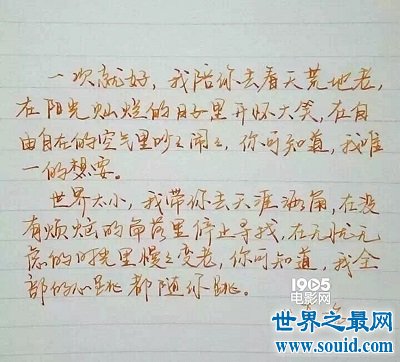 一次就好，我陪你去看天荒地老，
在阳光灿烂的日子里开怀大笑，在自
由自在的空气里吵々闹々，你可知道，我唯
一的想要。
世界太小，我带你去天涯海角，在没
有烦恼的角落里停止寻找，在无忧无
虑的时光里慢々变老，你可知道，我全
部的心跳都随你跳。
1905
电影网
世界之最网
www.souid.com